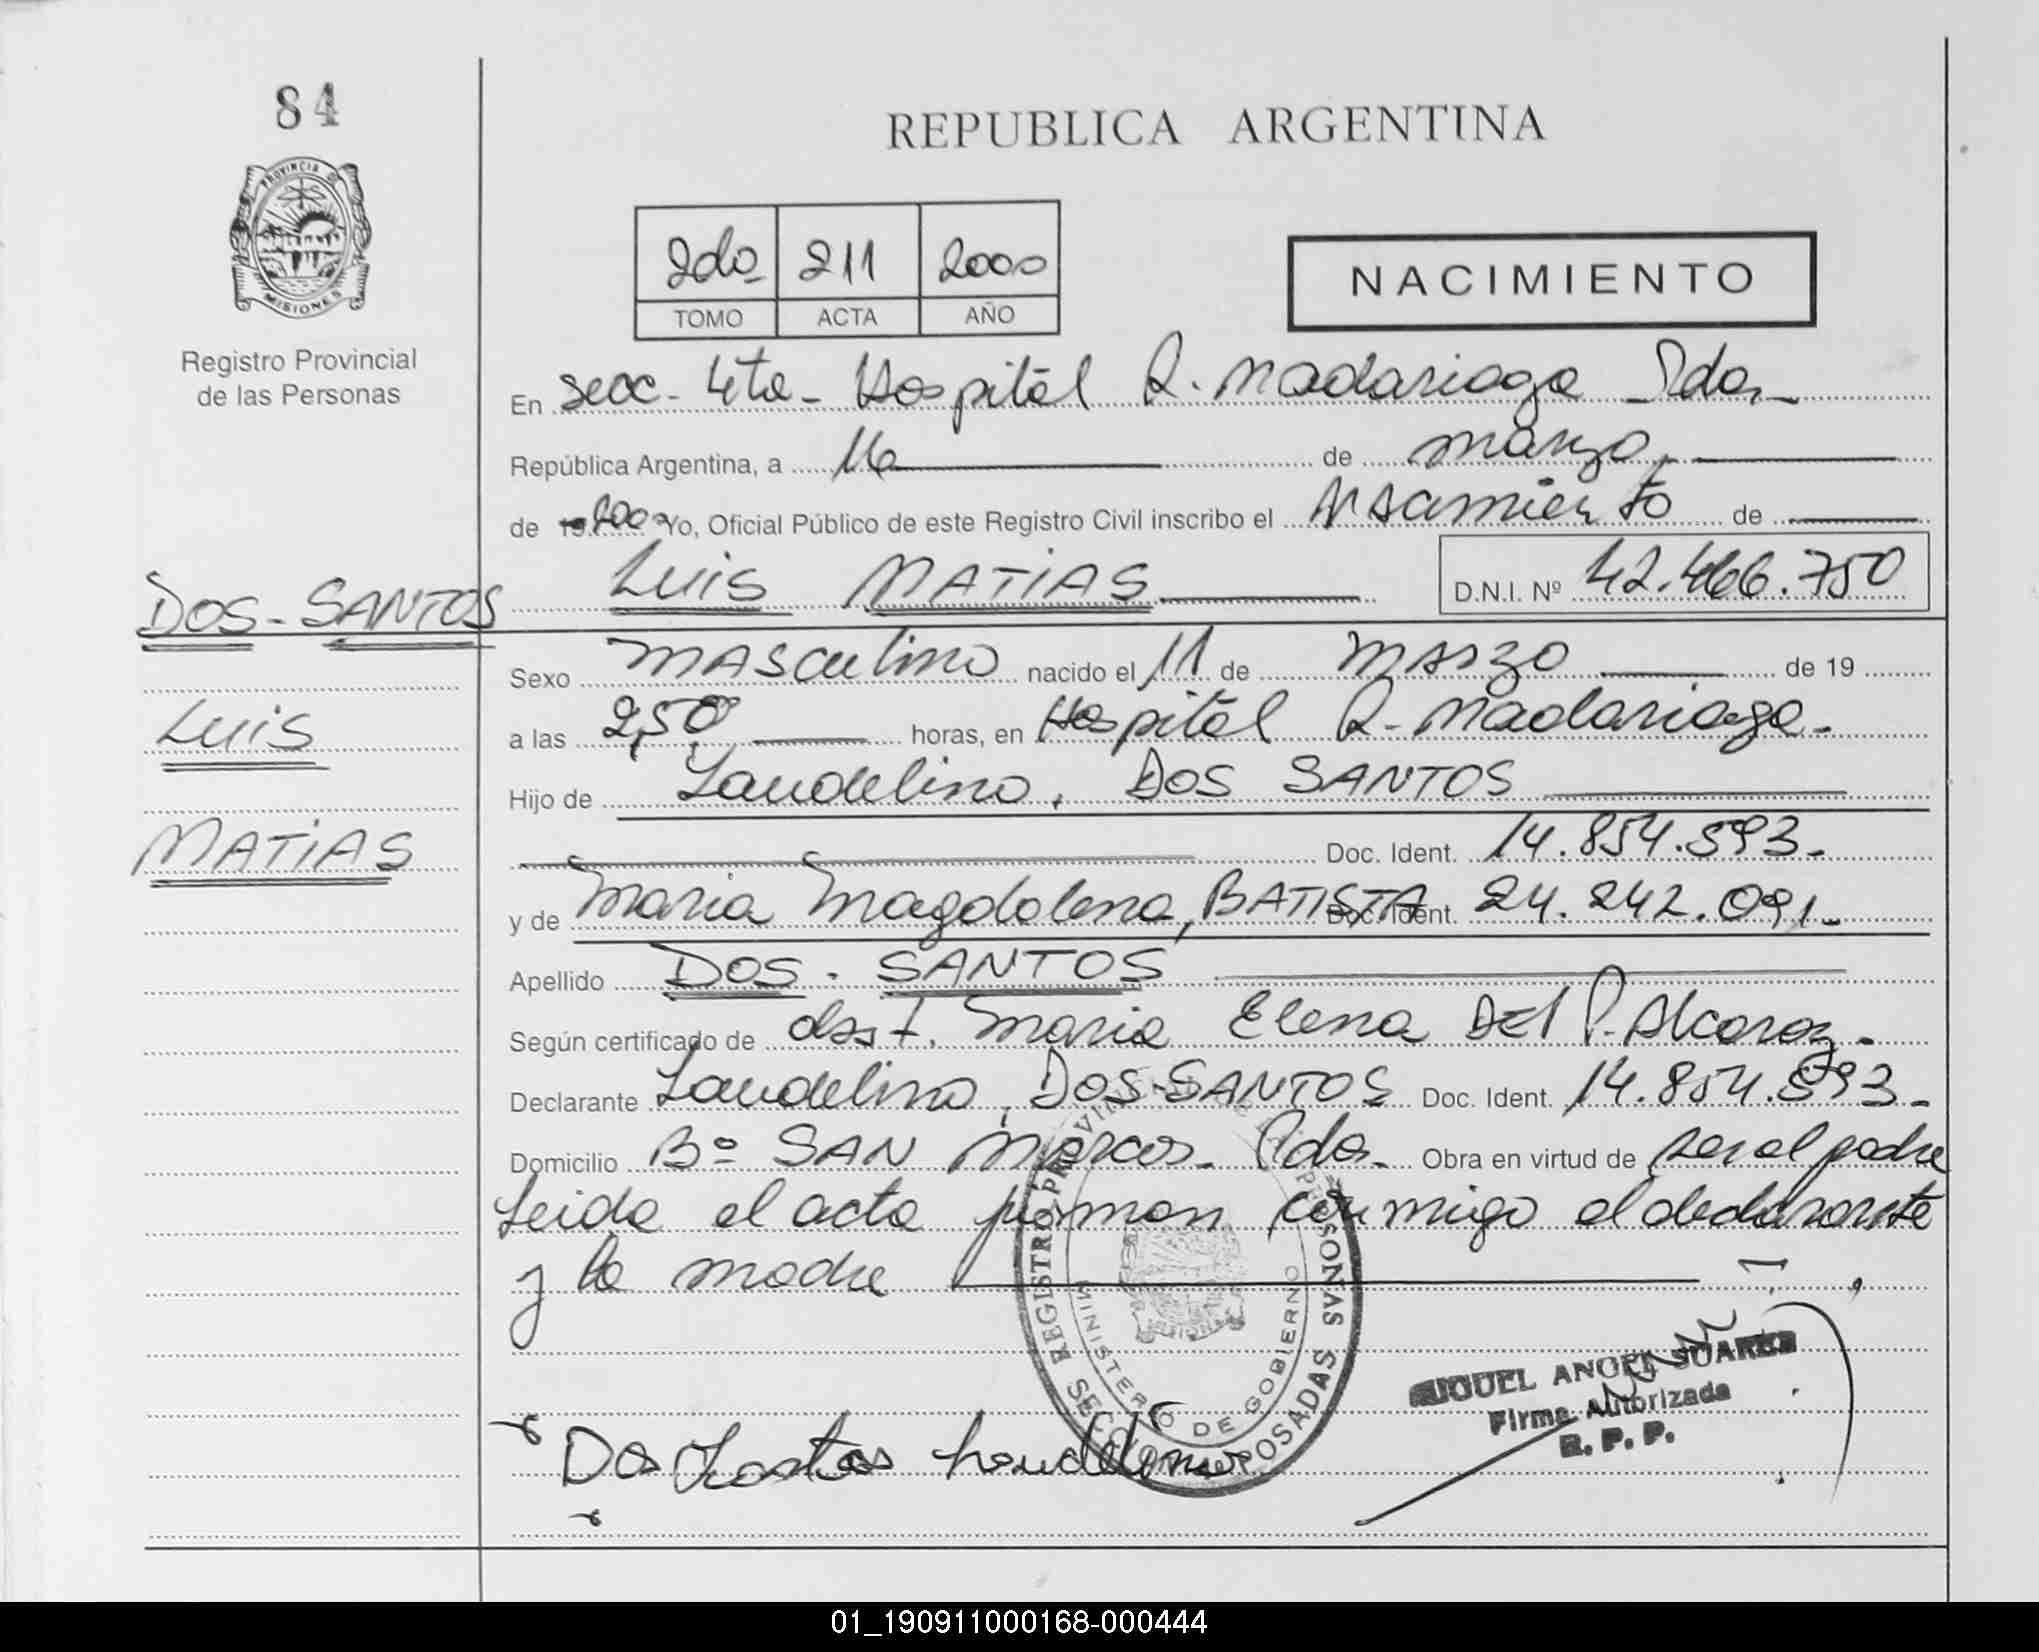 84
REPUBLICA ARGENTINA
PROVINCIA DE
MISIONES
Registro Provincial
de las Personas
2do 211 2000
TOMO ACTA AÑO
NACIMIENTO
En secc. 4ta - Hospital R. Madariaga Pdas -
República Argentina, a 16 de marzo
de 2000 Yo, Oficial Público de este Registro Civil inscribo el Nacimiento de
DOS - SANTOS LUIS MATIAS D.N.I. Nº 42.466.750
Sexo masculino nacido el 11 de marzo de 19
LUIS
a las 2,50 horas, en Hospital R. Madariaga -
Hijo de Laudelino, DOS SANTOS
MATIAS
Doc. Ident. 14.854.593 -
y de Maria Magdalena, BATISTA Doc. Ident. 24.242.091 -
Apellido DOS - SANTOS
Según certificado de obst. Maria Elena DEl P. Alcaraz -
Declarante Laudelino, DOS-SANTOS Doc. Ident. 14.854.593 -
Domicilio Bº SAN Marcos - Pdas - Obra en virtud de ser el padre
Leida el acta firman conmigo el declarante
y la madre
REGISTRO PROVINCIAL DE LAS PERSONAS
MINISTERIO DE GOBIERNO
POSADAS
MIGUEL ANGEL SUAREZ
Firma Autorizada
R. P. P.
Dos Santos Laudelino
01_190911000168-000444